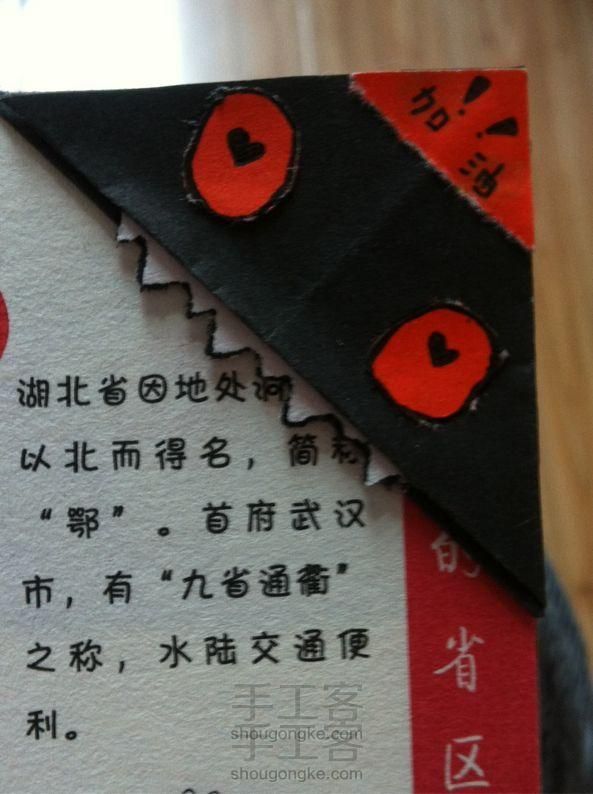 加油!!
湖北省因地处洞
以北而得名，简称
“鄂”。首府武汉
市，有“九省通衢”
之称，水陆交通便
利。
的省区
手工客
shougongke.com
手工客
shougongke.com